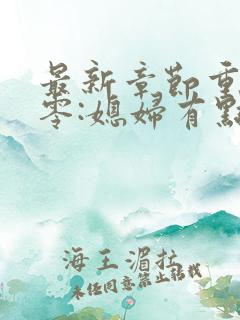 最新章節重
零:媳婦有點
海王湄拉
未经同意禁止转载